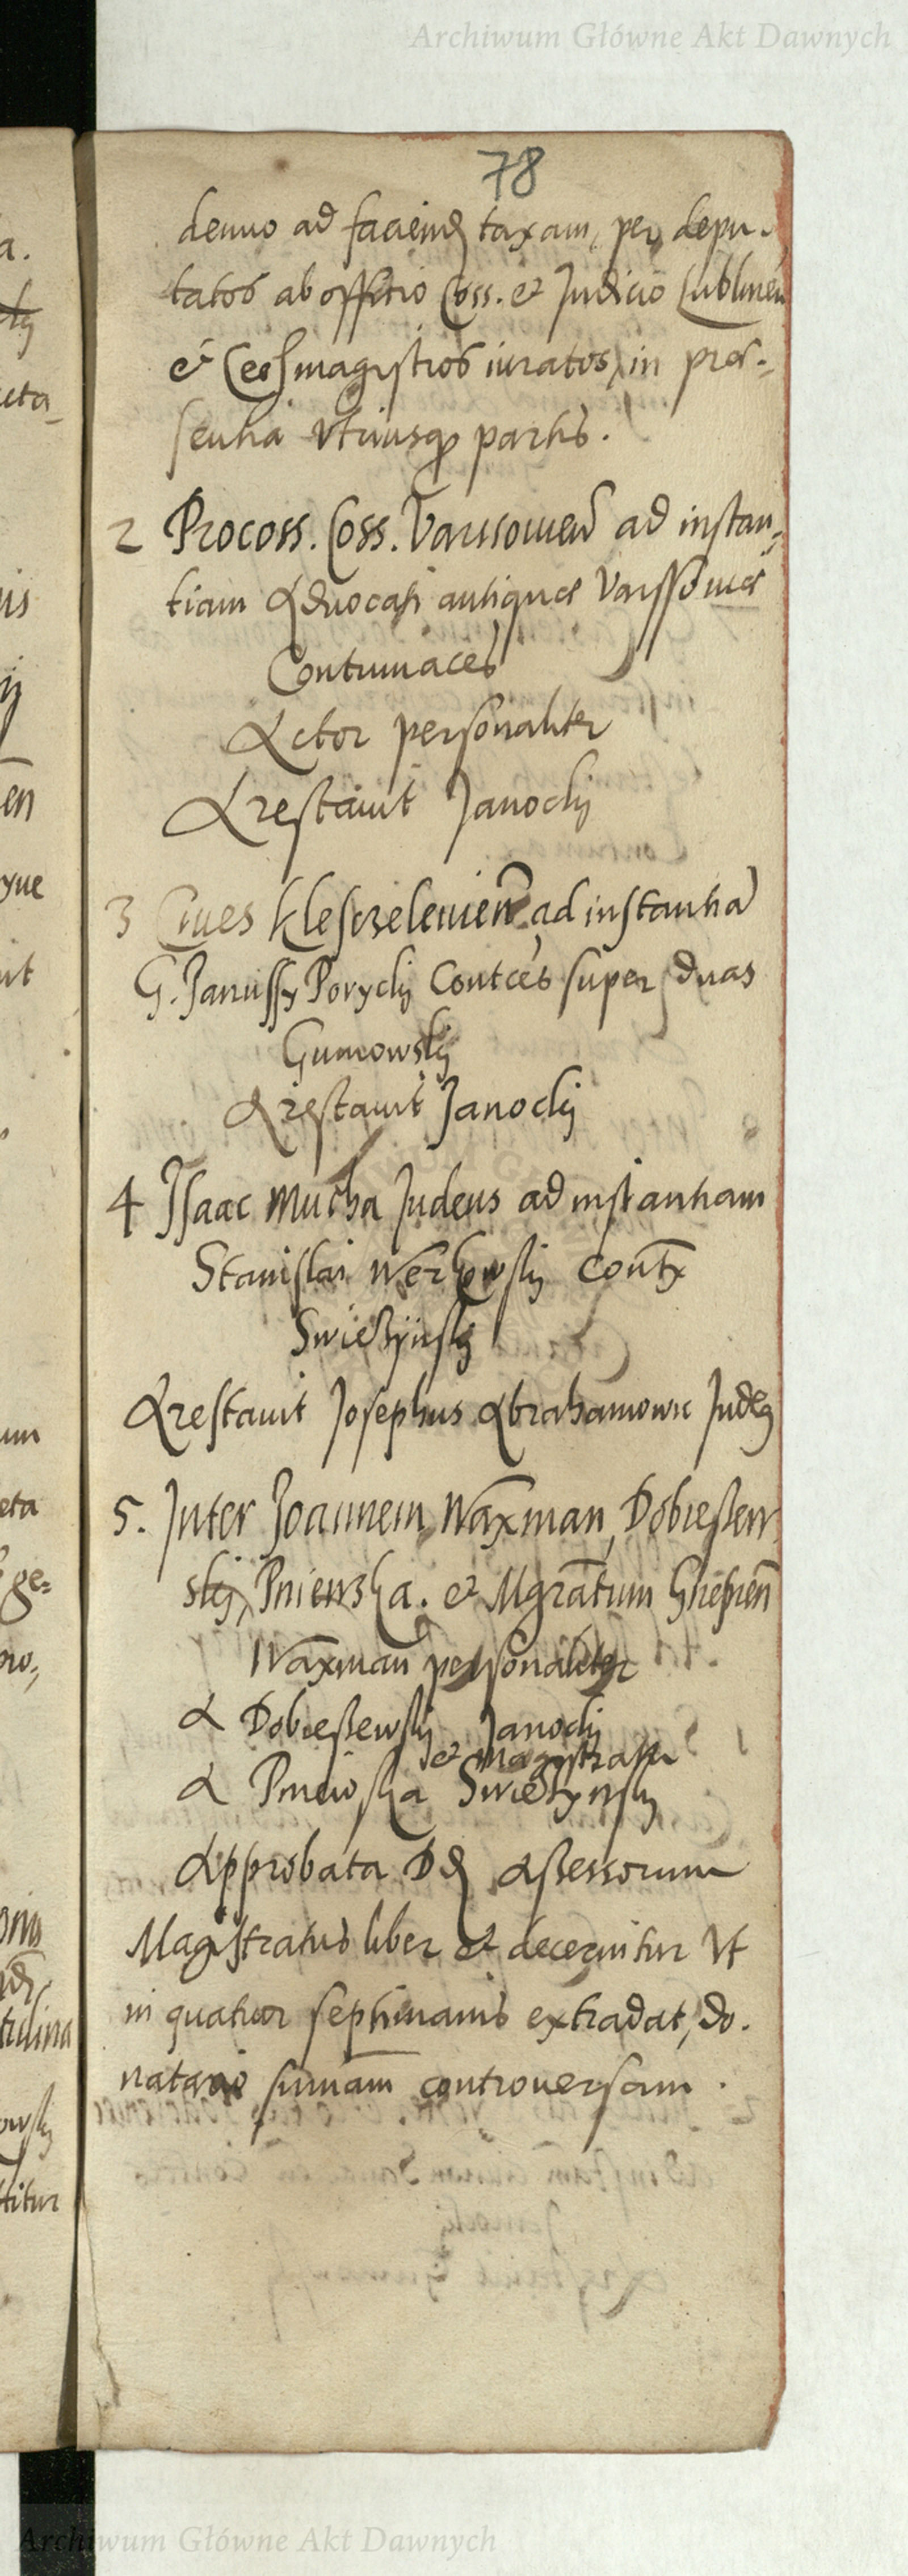 Archiwum Główne Akt Dawnych
78
denuo ad faciend taxam, per depu-
tatos ab offitio Coss. et Judicio Lublinen
et magistros iuratos, in præ-
sentia vtriusq partis.
2 Procoss. Coss. Varssouien ad instan-
tiam Aduocati antiquæ Varssouiæ
Contumaces
Actor personaliter
Arestauit Janocky
3 Ciues Klesczelewien ad instantia
G. Janussy Porycky Contces super duas
Guncowsky
Arestauit Janocky
4 Isaac Mucha Judeus ad instantiam
Stanislai Werkowsky Contx
Swieszynsky
Arestauit Josephus Abrahamowic Judeus
5. Inter Joannem Waxman, Dobressew
sky, Pniewska. et Mgratum Gnesnen
Waxman personaliter
A Dobressewsky Janocky
et magistratu
A Pniewska Swieszynsky
Approbata Dd assessorum
Magistratus liber et decernitur vt
in quatuor septimanis extradat, do-
natario sumam controuersam.
Archiwum Główne Akt Dawnych